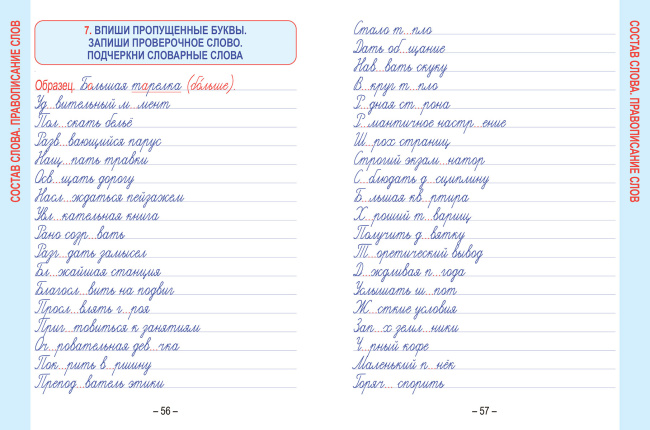 СОСТАВ СЛОВА. ПРАВОПИСАНИЕ СЛОВ
7. ВПИШИ ПРОПУЩЕННЫЕ БУКВЫ.
ЗАПИШИ ПРОВЕРОЧНОЕ СЛОВО.
ПОДЧЕРКНИ СЛОВАРНЫЕ СЛОВА
Образец. Большая тарелка (больше).
Уд...вительный м...мент
Пол...скать бельё
Разв...вающийся парус
Нащ...пать травки
Осв...щать дорогу
Насл...ждаться пейзажем
Увл...кательная книга
Рано созр...вать
Разг...дать замысел
Бл...жайшая станция
Благосл...вить на подвиг
Просл...влять г...роя
Приг...товиться к занятиям
Оч...ровательная дев...чка
Пок...рить в...ршину
Препод...ватель этики
– 56 –
Стало т...пло
Дать об...щание
Нав...вать скуку
В...круг т...пло
Р...дная ст...рона
Р...мантичное настр...ение
Ш...рох страниц
Строгий экзам...натор
С...блюдать д...сциплину
Б...льшая кв...ртира
Х...роший т...варищ
Получить д...вятку
Т...оретический вывод
Д...ждливая п...года
Услышать ш...пот
Ж...сткие условия
Зап...х земл...ники
Ч...рный кофе
Маленький п...нёк
Горяч... спорить
– 57 –
СОСТАВ СЛОВА. ПРАВОПИСАНИЕ СЛОВ